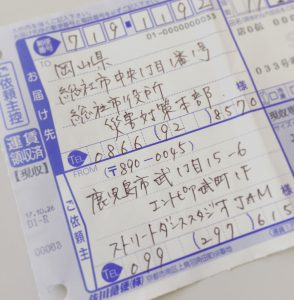 719-1192
01-0000000033
TO
岡山県
総社市中央1丁目1番1号
総社市役所
災害対策本部
様
TEL 0866(92)8570
FROM (〒890-0045)
鹿児島市武1丁目15-6
エントピア武町1F
ストリートダンススタジオJAM 様
TEL 099 (297)615
お届け先
ご依頼主控
運賃
領収済
[現収]
ご依頼主
17.10.26
D1-R
00063
佐川急便(株)